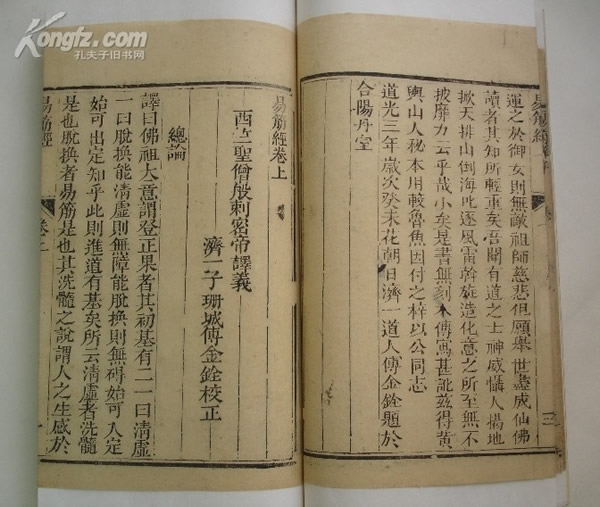 Kongfz.com
孔夫子旧书网
運之於御女則無敵祖師慈悲但願舉世盡成仙佛
讀者其知所輕重矣吾聞有道之士神威懾人揭地
掀天排山倒海叱逐風雷斡旋造化意之所至無不
披靡力云乎哉小矣是書無刻本傳寫甚訛茲得黄
輿山人秘本用較魯魚因付之梓以公同志
道光三年歲次癸未花朝日濟一道人傳金銓題於
合陽丹室
易筋經卷上
西竺聖僧般剌密帝譯義
濟一子珊城傳金銓校正
總論
譯曰佛祖大意謂登正果者其初基有二一曰清虛
一曰脫換能清虛則無障能脫換則無碍始可入定
始可出定知乎此則進道有基矣所云清虛者洗髓
是也脫換者易筋是也其洗髓之說謂人之生感於
易筋經
卷上
一